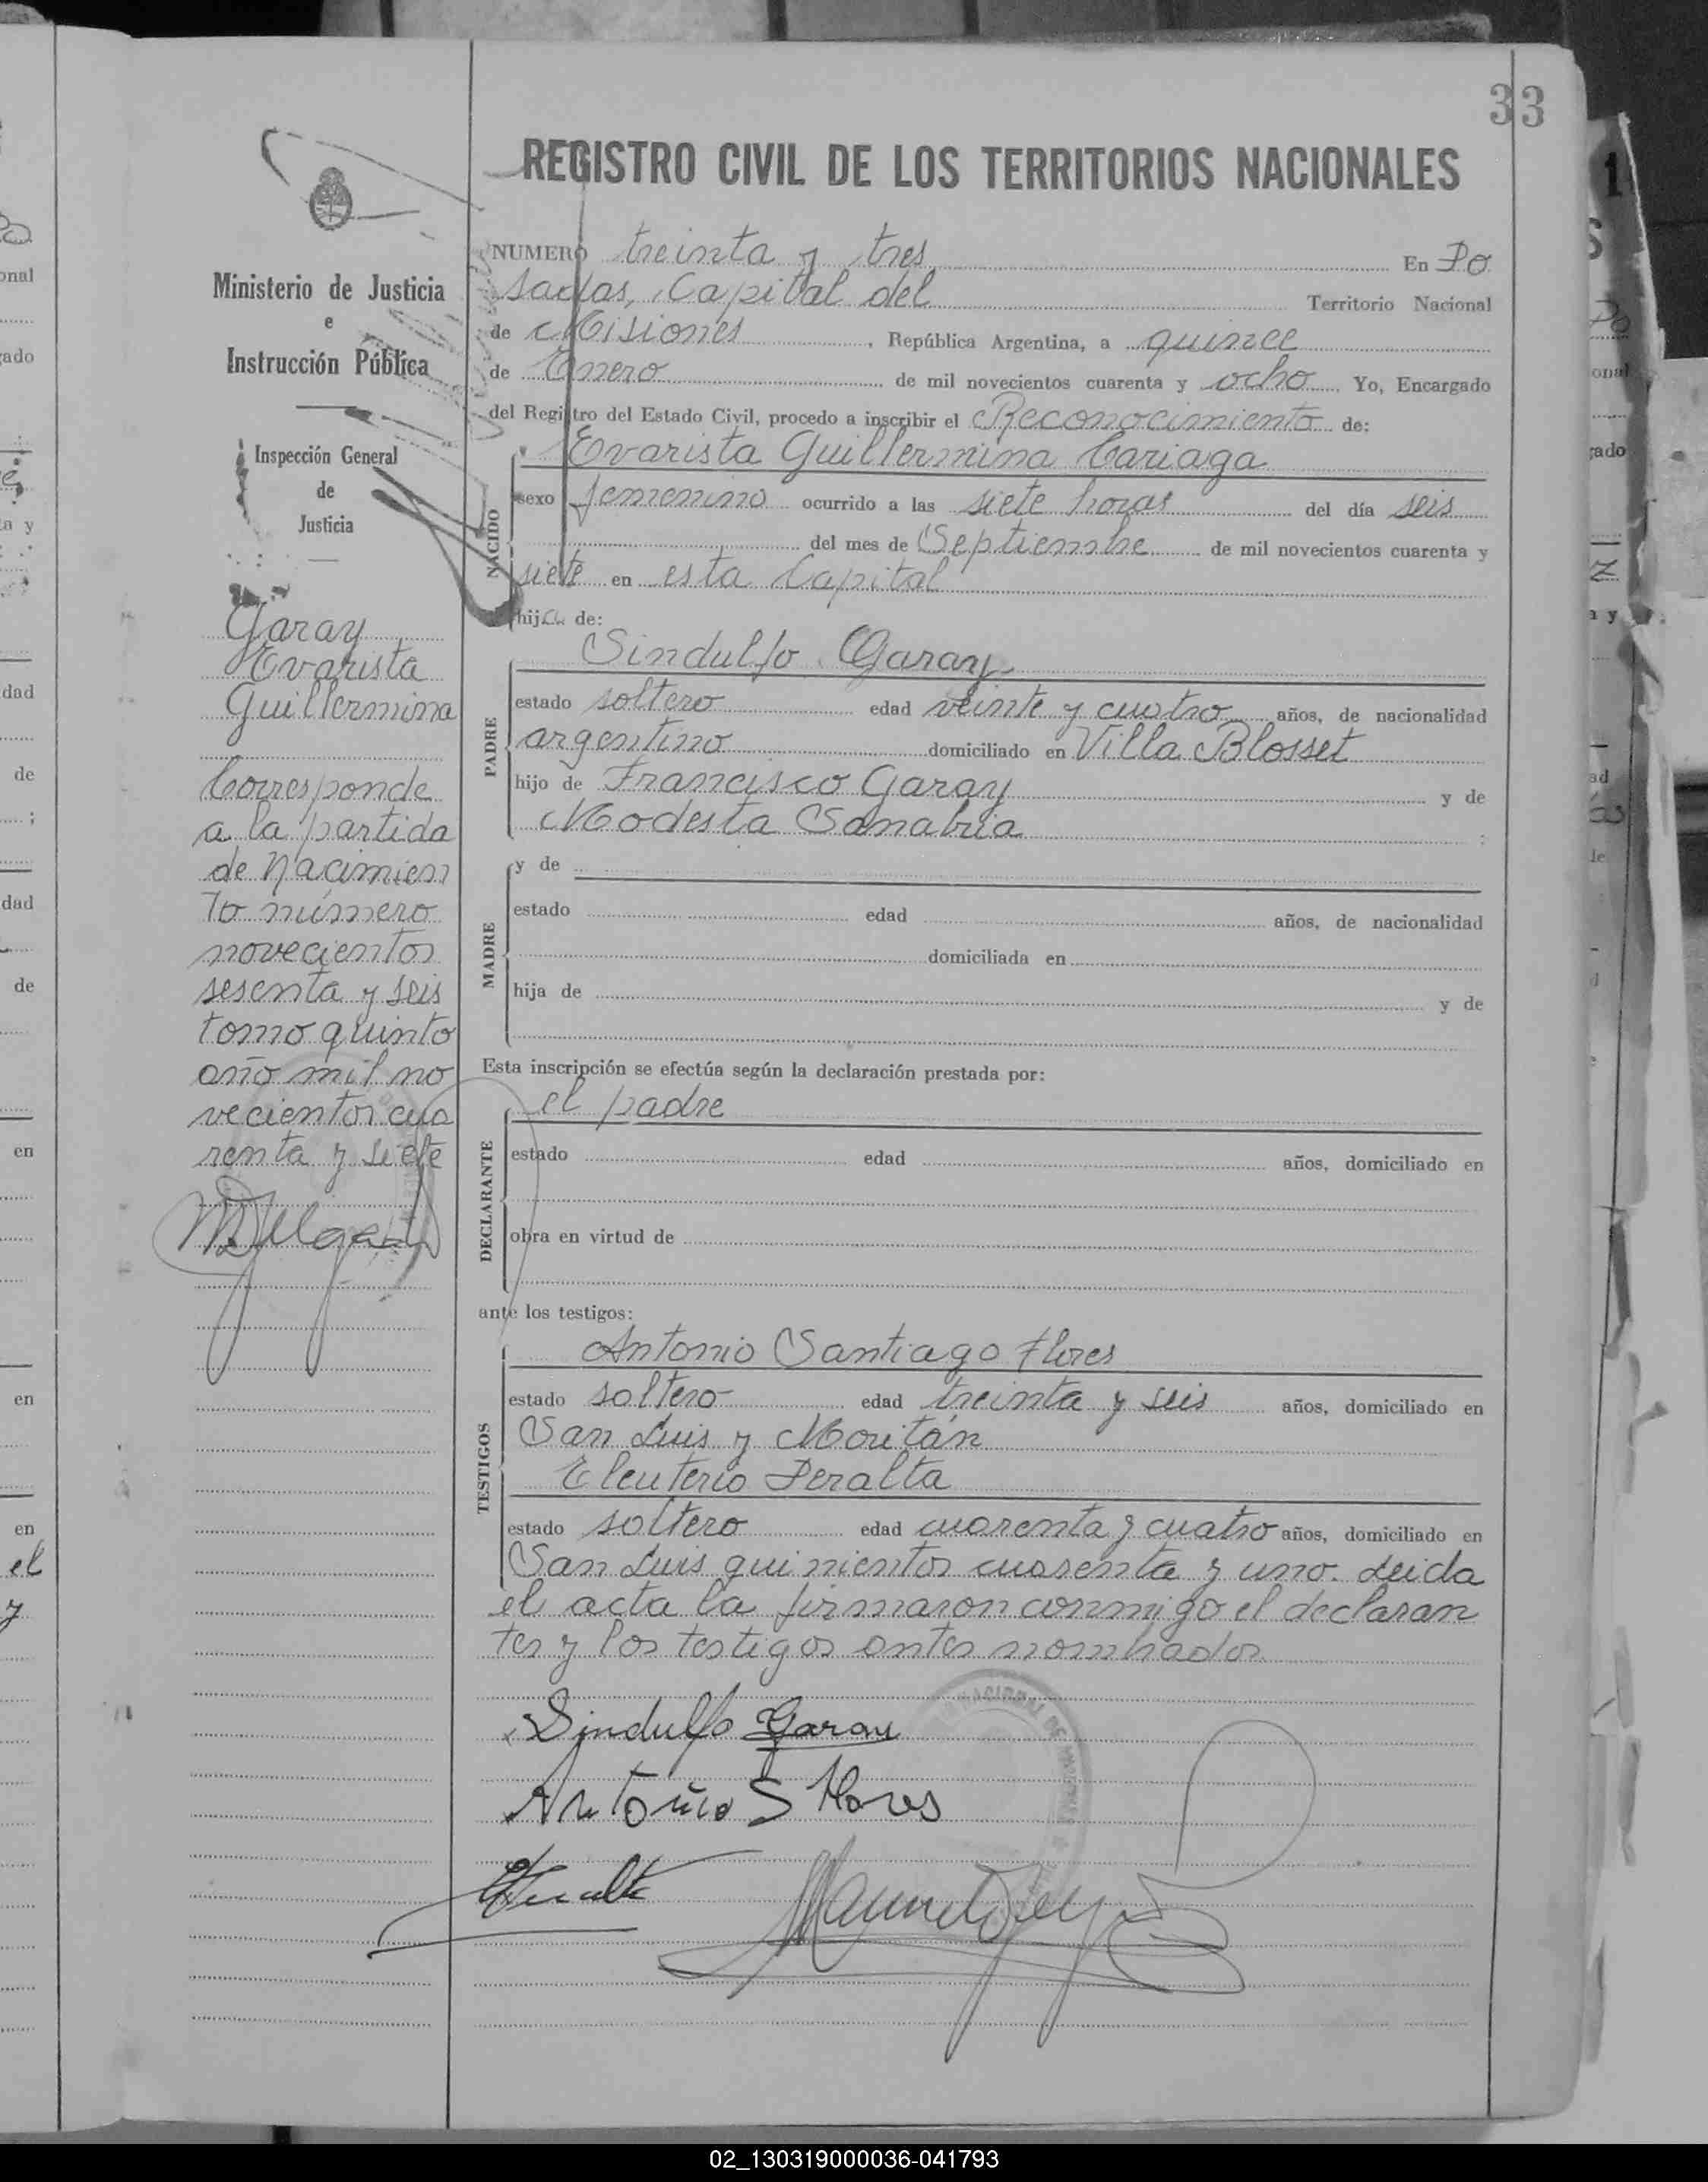 33
REGISTRO CIVIL DE LOS TERRITORIOS NACIONALES
Ministerio de Justicia
e
Instrucción Pública
Inspección General
de
Justicia
Garay
Evarista
Guillermina
Corresponde
a la partida
de Nacimien
to número
novecientos
sesenta y seis
tomo quinto
año mil no
vecientos cua
renta y siete
NUMERO treinta y tres En Po
sadas, Capital del Territorio Nacional
de Misiones, República Argentina, a quince
de Enero de mil novecientos cuarenta y ocho Yo, Encargado
del Registro del Estado Civil, procedo a inscribir el Reconocimiento de:
NACIDO
Evarista Guillermina Cariaga
sexo femenino ocurrido a las siete horas del día seis
del mes de Septiembre de mil novecientos cuarenta y
siete en esta Capital
hija de:
PADRE
Sindulfo Garay
estado soltero edad veinte y cuatro años, de nacionalidad
argentino domiciliado en Villa Blosset
hijo de Francisco Garay y de
Modesta Sanabria ;
MADRE
y de
estado edad años, de nacionalidad
domiciliada en
hija de y de
Esta inscripción se efectúa según la declaración prestada por:
DECLARANTE
el padre
estado edad años, domiciliado en
obra en virtud de
ante los testigos:
TESTIGOS
Antonio Santiago Flores
estado soltero edad treinta y seis años, domiciliado en
San Luis y Moritán
Eleuterio Peralta
estado soltero edad cuarenta y cuatro años, domiciliado en
San Luis quinientos cuarenta y uno. Leida
el acta la firmaron conmigo el declaran
tes y los testigos antes nombrados
Sindulfo Garay
Antonio S Flores
02_130319000036-041793